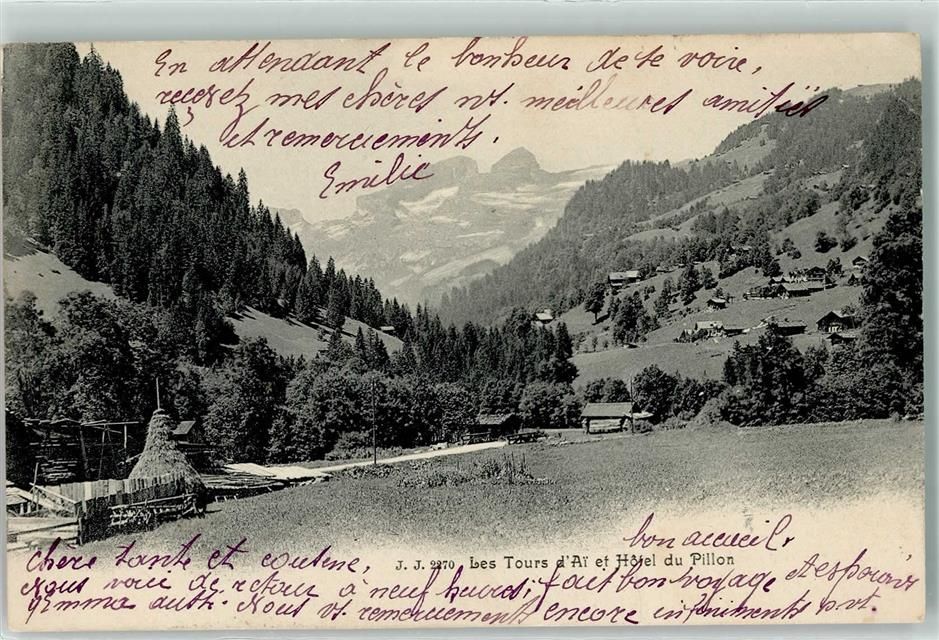 En attendant le bonheur de te voire,
recevez mes chères vt. meilleures amitiés
et remerciements.
Emilie
bon accueil,
J. J. 2270 Les Tours d'Aï et Hôtel du Pillon
chère tante et cousine,
Nous voici de retour à neuf heures; fait bon voyage et espérons
Emma aussi. Nous vt. remerciements encore infiniments p. vt.